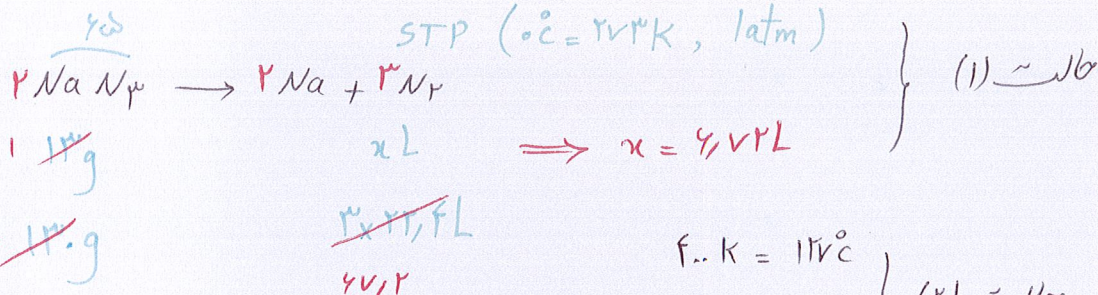 ۶۵ STP (۰°C = ۲۷۳K , 1atm)
۲NaN۳ → ۲Na + ۳N۲ } حالت (۱)
۱ ۱۳g xL ⇒ x = ۶,۷۲L
۱۳۰g ۳×۲۲,۴L
۶۷,۲ ۴۰۰K = ۱۲۷°C